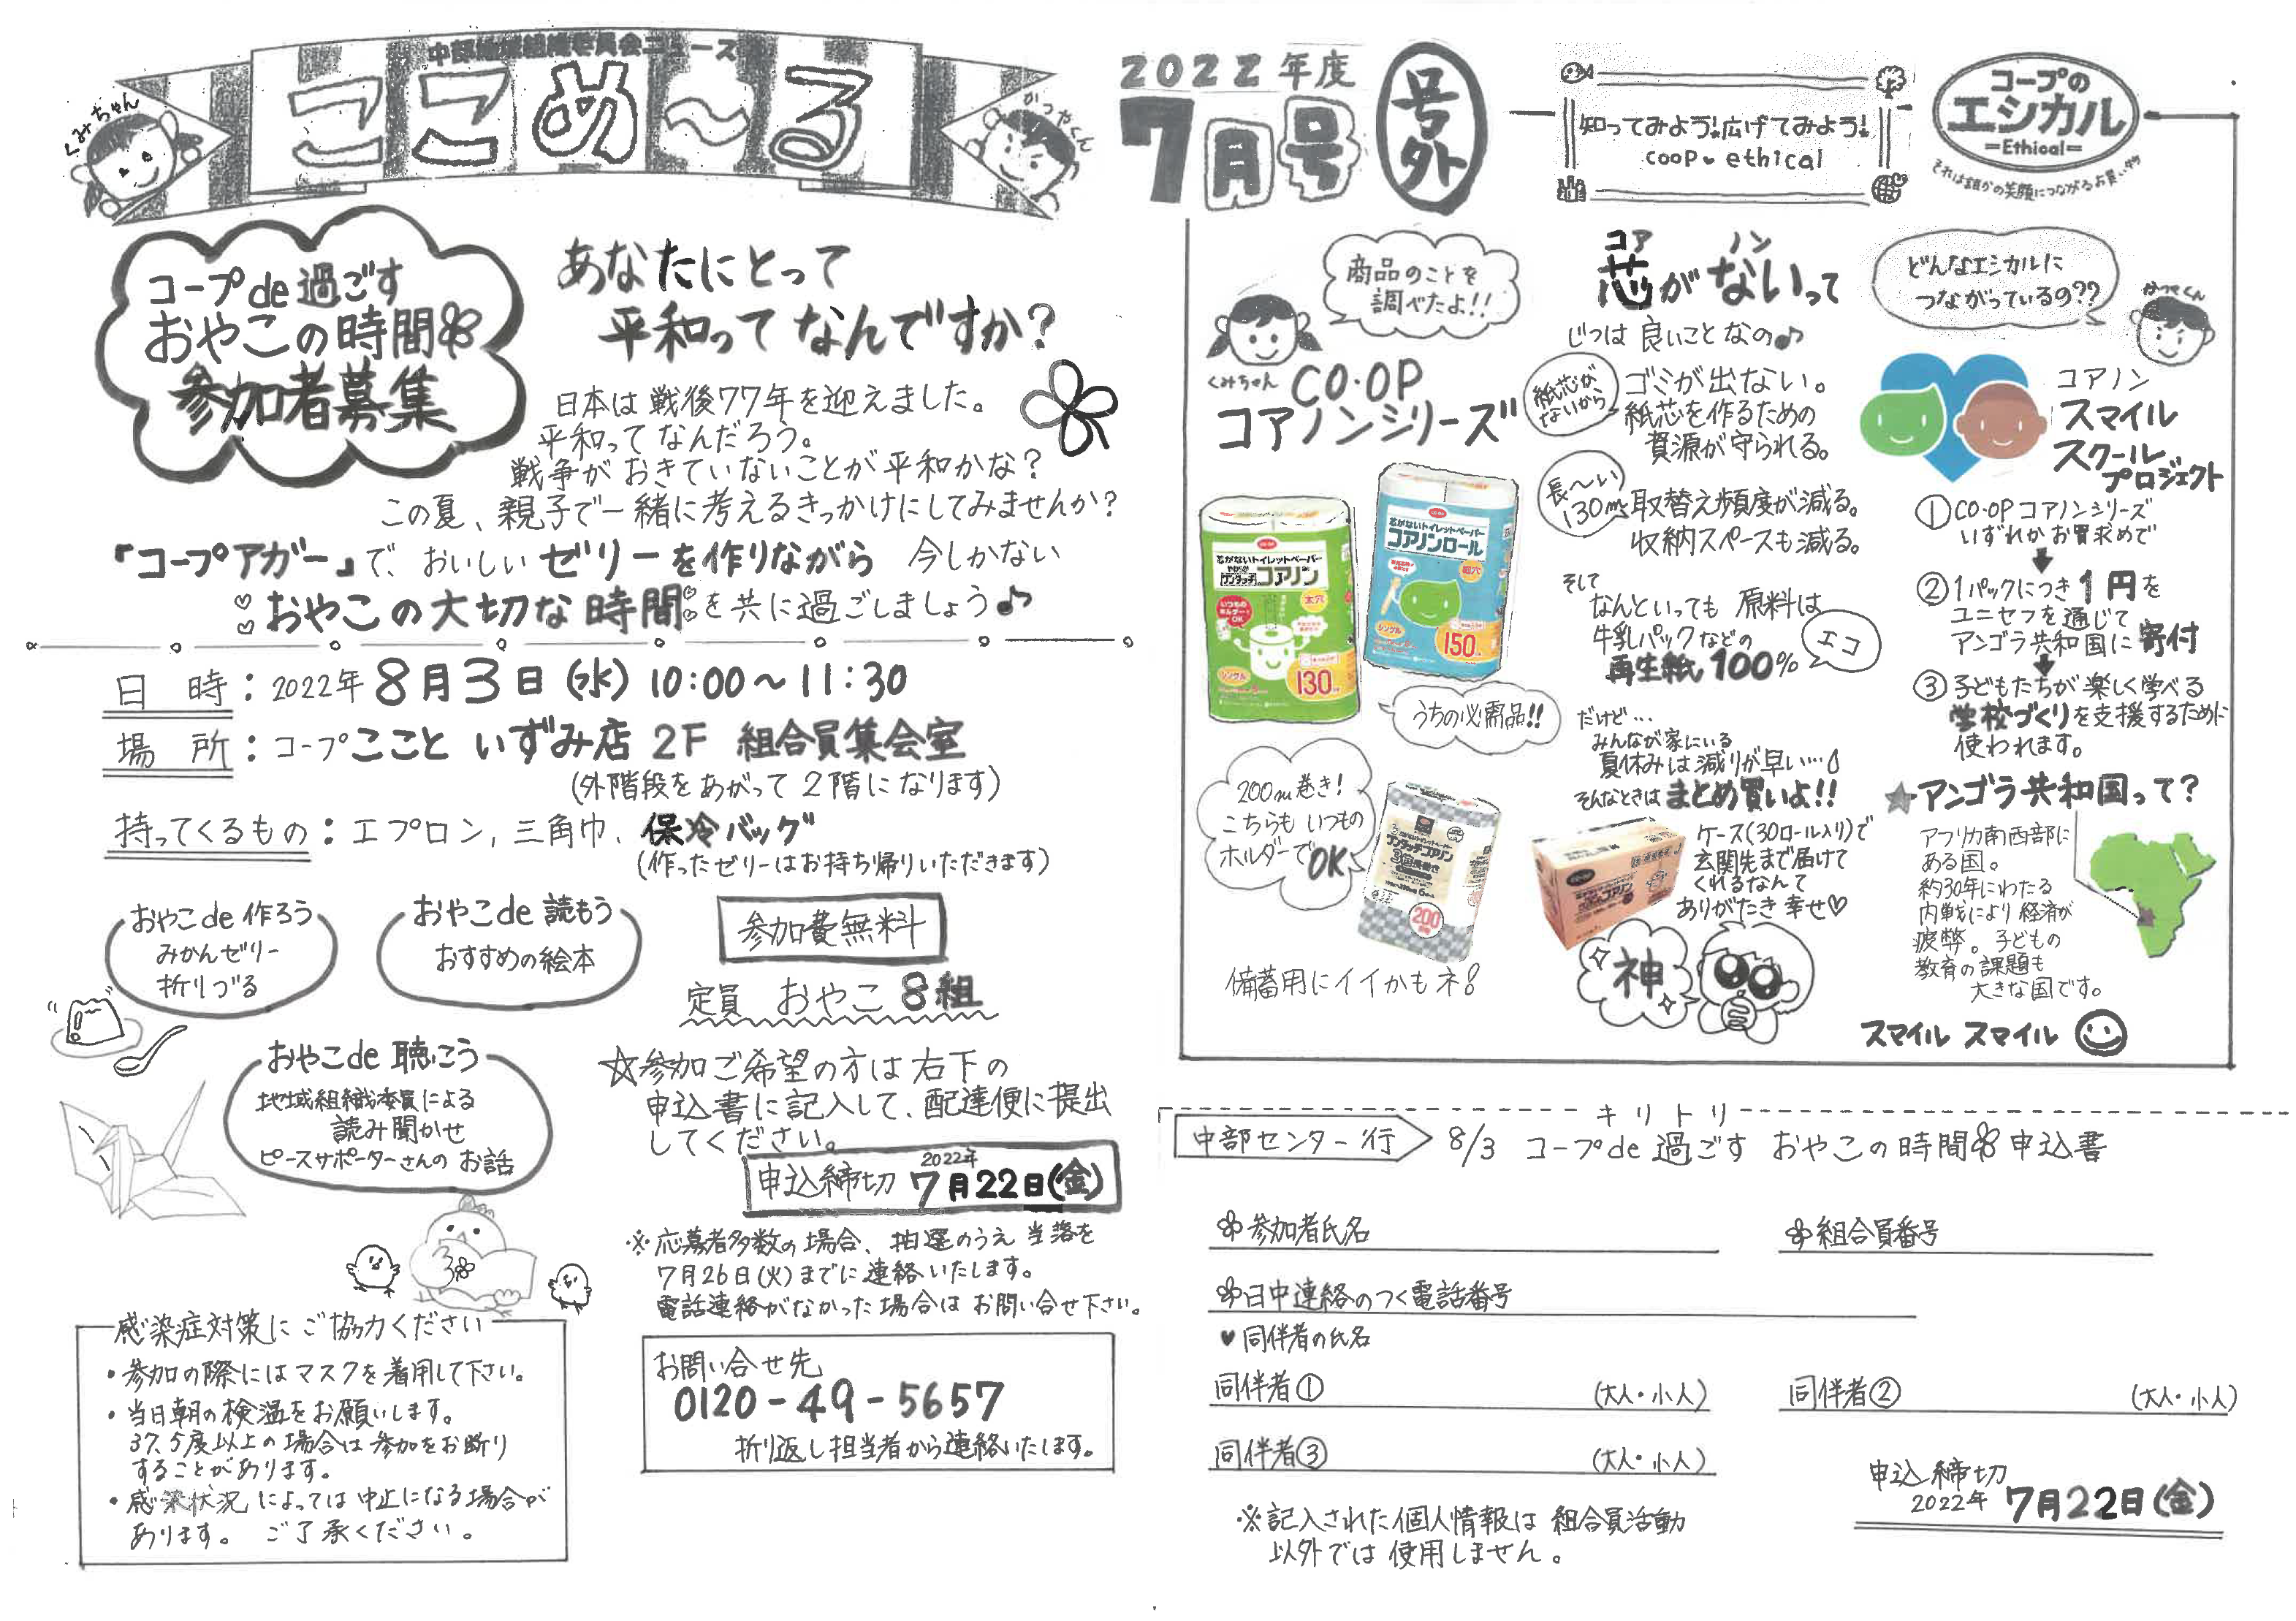 中部地域組織委員会ニュース
ここめ～る
くみちゃん
かつやくん
2022年度
7月号
号外
コープde過ごす
おやこの時間
参加者募集
あなたにとって
平和ってなんですか?
日本は戦後77年を迎えました。
平和ってなんだろう。
戦争がおきていないことが平和かな?
この夏、親子で一緒に考えるきっかけにしてみませんか?
『コープアガー』で、おいしいゼリーを作りながら 今しかない
おやこの大切な時間を共に過ごしましょう♪
日 時:2022年8月3日(水)10:00～11:30
場 所:コープここと いずみ店 2F 組合員集会室
(外階段をあがって2階になります)
持ってくるもの:エプロン,三角巾、保冷バッグ
(作ったゼリーはお持ち帰りいただきます)
おやこde作ろう
みかんゼリー
折りづる
おやこde読もう
おすすめの絵本
おやこde聴こう
地域組織委員による
読み聞かせ
ピースサポーターさんのお話
参加費無料
定員 おやこ8組
☆参加ご希望の方は右下の
申込書に記入して、配達便に提出
してください。
申込締切 2022年7月22日(金)
※応募者多数の場合、抽選のうえ当落を
7月26日(火)までに連絡いたします。
電話連絡がなかった場合はお問い合せ下さい。
お問い合せ先
0120-49-5657
折り返し担当者から連絡いたします。
感染症対策にご協力ください
・参加の際にはマスクを着用して下さい。
・当日朝の検温をお願いします。
37.5度以上の場合は参加をお断り
することがあります。
・感染状況によっては中止になる場合が
あります。 ご了承ください。
知ってみよう!広げてみよう!
coop♥ethical
コープの
エシカル
=Ethical=
それは誰かの笑顔につながるお買い物
商品のことを
調べたよ!!
くみちゃん
CO・OP
コアノンシリーズ
コア ノン
芯がないって
じつは良いことなの♪
紙芯が
ないから
ゴミが出ない。
紙芯を作るための
資源が守られる。
長～い
130m
取替え頻度が減る。
収納スペースも減る。
そして
なんといっても原料は
牛乳パックなどの
再生紙100%
エコ
芯がないトイレットペーパー
ワンタッチコアノン
いつもの
ホルダー
OK
太穴
シングル
130m
芯がないトイレットペーパー
コアノンロール
細穴
シングル
150m
うちの必需品!!
だけど…
みんなが家にいる
夏休みは減りが早い…
そんなときはまとめ買いよ!!
200m巻き!
こちらもいつもの
ホルダーでOK
ワンタッチコアノン
200
備蓄用にイイかもネ!
ケース(30ロール入り)で
玄関先まで届けて
くれるなんて
ありがたき幸せ♡
神
どんなエシカルに
つながっているの??
かつやくん
コアノン
スマイル
スクール
プロジェクト
①CO・OPコアノンシリーズ
いずれかお買求めで
②1パックにつき1円を
ユニセフを通じて
アンゴラ共和国に寄付
③子どもたちが楽しく学べる
学校づくりを支援するために
使われます。
★アンゴラ共和国って?
アフリカ南西部に
ある国。
約30年にわたる
内戦により経済が
疲弊。子どもの
教育の課題も
大きな国です。
スマイル スマイル
キリトリ
中部センター行
8/3 コープde過ごす おやこの時間 申込書
参加者氏名
組合員番号
日中連絡のつく電話番号
♥同伴者の氏名
同伴者① (大人・小人)
同伴者② (大人・小人)
同伴者③ (大人・小人)
申込締切
2022年7月22日(金)
※記入された個人情報は組合員活動
以外では使用しません。